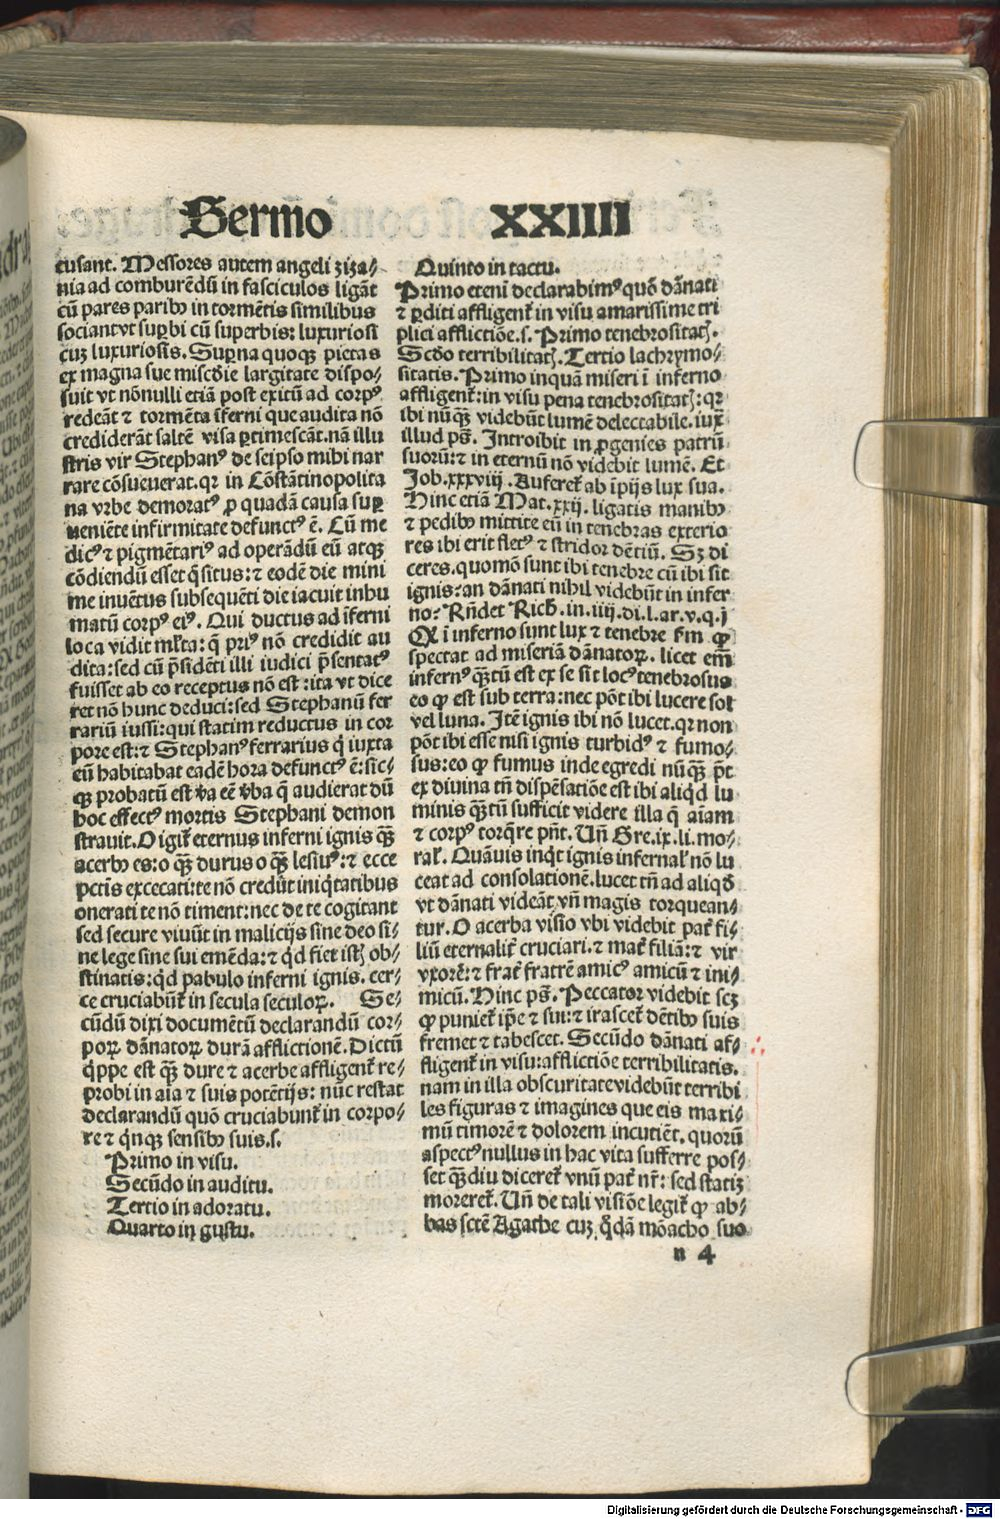 Sermo XXIIII
cusant. Messores autem angeli ziza-
nia ad comburēdū in fasciculos ligāt
cū pares paribꝰ in tormētis similibus
sociantvt suꝑbi cū superbis: luxuriosi
cuꝫ luxuriosis. Suꝑna quoqꝫ pietas
ex magna sue miscd̄ie largitate dispo-
suit vt nōnulli etiā post exitū ad corpꝰ
redeāt ⁊ tormēta īferni que audita nō
crediderāt saltē visa ꝑtimescāt. nā illu
stris vir Stephanꝰ de seipso mihi nar
rare cōsueuerat. qꝛ in Cōstātinopolita
na vrbe demoratꝰ ꝓ quadā causa suꝑ
ueniēte infirmitate defunctꝰ ē. Cū me
dicꝰ ⁊ pigmētariꝰ ad operādū eū atqꝫ
cōdiendū esset q̄situs: ⁊ eodē die mini
me inuētus subsequēti die iacuit inhu
matū corpꝰ eiꝰ. Qui ductus ad īferni
loca vidit mĺta: q̄ priꝰ nō credidit au
dita: sed cū p̄sidēti illi iudici p̄sentatꝰ
fuisset ab eo receptus nō est : ita vt dice
ret nō hunc deduci: sed Stephanū fer
rariū iussi: qui statim reductus in cor
pore est: ⁊ Stephanꝰ ferrarius q̇ iuxta
eū habitabat eadē hora defunctꝰ ē: sic-
qꝫ probatū est v̄a eē v̄ba q̄ audierat dū
hoc effectꝰ mortis Stephani demon
strauit. O igit̄ eternus inferni ignis qꝫ̄
acerbꝰ es: o qꝫ̄ durus o qꝫ̄ lesiuꝰ: ⁊ ecce
pctīs excecati: te nō credūt iniq̇tatibus
onerati te nō timent: nec de te cogitant
sed secure viuūt in malicijs sine deo si-
ne lege sine sui emēda: ⁊ q̇d fiet istꝫ ob-
stinatis: q̇d pabulo inferni ignis. cer-
te cruciabūt̄ in secula seculoꝝ. Se-
cūdū dixi documētū declarandū cor-
poꝝ dānatoꝝ durā afflictionē. Dictū
q̇ppe est qꝫ̄ dure ⁊ acerbe affligent̄ re-
probi in aīa ⁊ suis potētijs: nūc restat
declarandū quō cruciabunt̄ in corpo-
re ⁊ q̇nqꝫ sensibꝰ suis. s.
Primo in visu.
Secūdo in auditu.
Tertio in adoratu.
Quarto in gustu.
Quinto in tactu.
Primo etenī declarabimꝰ quō dānati
⁊ ꝑditi affligent̄ in visu amarissime tri
plici afflictiōe. s. Primo tenebrositatꝫ.
Scd̄o terribilitatꝫ. Tertio lachrymo-
sitatis. Primo inquā miseri ī inferno
affligent̄: in visu pena tenebrositatꝫ: qꝛ
ibi nūqꝫ̄ videbūt lumē delectabile. iux̄
illud ps̄. Introibit in ꝓgenies patrū
suorū: ⁊ in eternū nō videbit lumē. Et
Job. xxxviij. Auferet̄ ab īpijs lux sua.
Hinc etiā Mat. xxij. ligatis manibꝰ
⁊ pedibꝰ mittite eū in tenebras exterio
res ibi erit fletꝰ ⁊ stridor dētiū. Sꝫ di
ceres. quomō sunt ibi tenebre cū ibi sit
ignis: an dānati nihil videbūt in infer
no: Rn̄det Rich̄. in. iiij. di. l. ar. v. q. j
Qꝫ ī inferno sunt lux ⁊ tenebre fm̄ ꝙ
spectat ad miseriā dānatoꝝ. licet em̄
infernꝰ qꝫ̄tū est ex se sit locꝰ tenebrosus
eo ꝙ est sub terra: nec pōt ibi lucere sol
vel luna. Itē ignis ibi nō lucet. qꝛ non
pōt ibi esse nisi ignis turbidꝰ ⁊ fumo-
sus: eo ꝙ fumus inde egredi nūqꝫ̄ pōt
ex diuina tn̄ dispēsatiōe est ibi aliqd̄ lu
minis qꝫ̄tū sufficit videre illa q̄ aīam
⁊ corpꝰ torq̄re pn̄t. Un̄ Gre. ix. li. mo-
raĺ. Quāuis inq̇t ignis infernaĺ nō lu
ceat ad consolationē. lucet tn̄ ad aliqd̄
vt dānati videāt vn̄ magis torquean-
tur. O acerba visio vbi videbit pat̄ fi-
liū eternalit̄ cruciari. ⁊ mat̄ filiā: ⁊ vir
vxorē: ⁊ frat̄ fratrē amicꝰ amicū ⁊ ini-
micū. Hinc ps̄. Peccator videbit scꝫ
ꝙ puniet̄ ip̄e ⁊ sui: ⁊ irascet̄ dētibꝰ suis
fremet ⁊ tabescet. Secūdo dānati af-
fligent̄ in visu: afflictiōe terribilitatis.
nam in illa obscuritate videbūt terribi
les figuras ⁊ imagines que eis maxi-
mū timorē ⁊ dolorem incutiēt. quorū
aspectꝰ nullus in hac vita sufferre pos-
set qꝫ̄diu diceret̄ vnū pat̄ nr̄: sed statiꝫ
moreret̄. Un̄ de tali visiōe legit̄ ꝙ ab-
bas sctē Agathe cuꝫ q̇dā mōacho suo
n 4
Digitalisierung gefördert durch die Deutsche Forschungsgemeinschaft - DFG